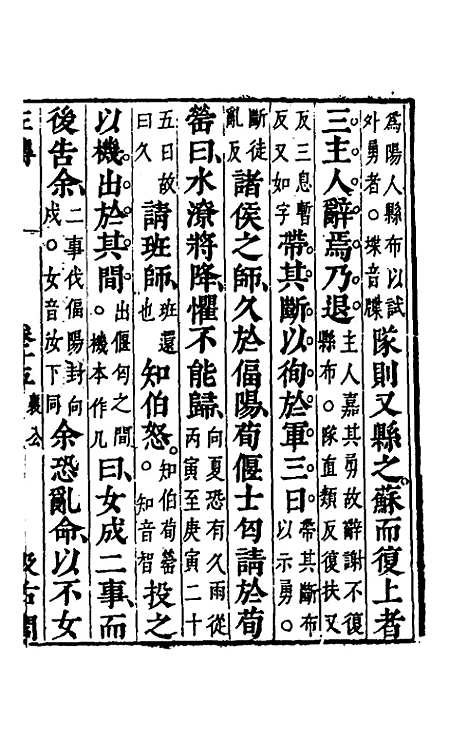 為陽人縣布以試
外勇者。堞音牒
隊則又縣之蘇而復上者
三主人辭焉乃退
主人嘉其勇故辭謝不復
縣布。隊直類反復扶又
反三息暫
反又如字
帶其斷以徇於軍三日
帶其斷布
以示勇。
斷徒
亂反
諸侯之師、久於偪陽、荀偃士匄請於荀
罃曰、水潦將降、懼不能歸、
向夏恐有久雨從
丙寅至庚寅二十
五日故
曰久
請班師、
班還
也
知伯怒。
知伯荀罃
。知音智
投之
以機。出於其間
出偃匄之間
。機本作几
曰、女成二事、而
後告余、
二事伐偪陽封向
戌。女音汝下同
余恐亂命、以不女
卷十五
襄公